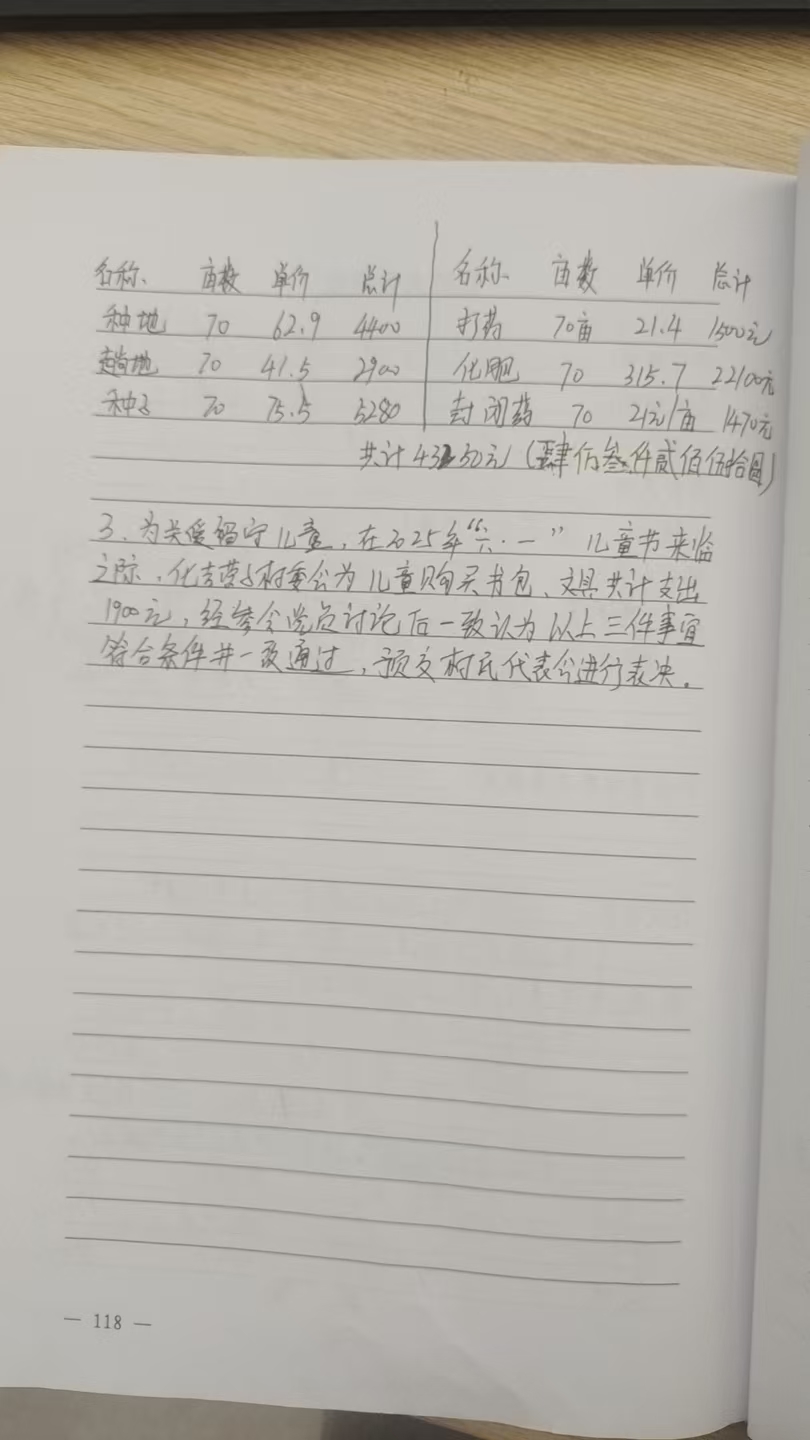 名称 亩数 单价 总计 名称 亩数 单价 总计
种地 70 62.9 4400 打药 70亩 21.4 1500元
趟地 70 41.5 2900 化肥 70 315.7 22100元
种子 70 75.5 5280 封闭药 70 21元/亩 1470元
共计 43250元(肆 叁仟贰佰伍拾圆)
3、为关爱留守儿童,在2025年“六·一” 儿童节来临
之际,化吉营子村委会为儿童购买书包、文具共计支出
1900元,经参会党员讨论后一致认为以上三件事宜
符合条件并一致通过,预交村民代表会进行表决。
— 118 —